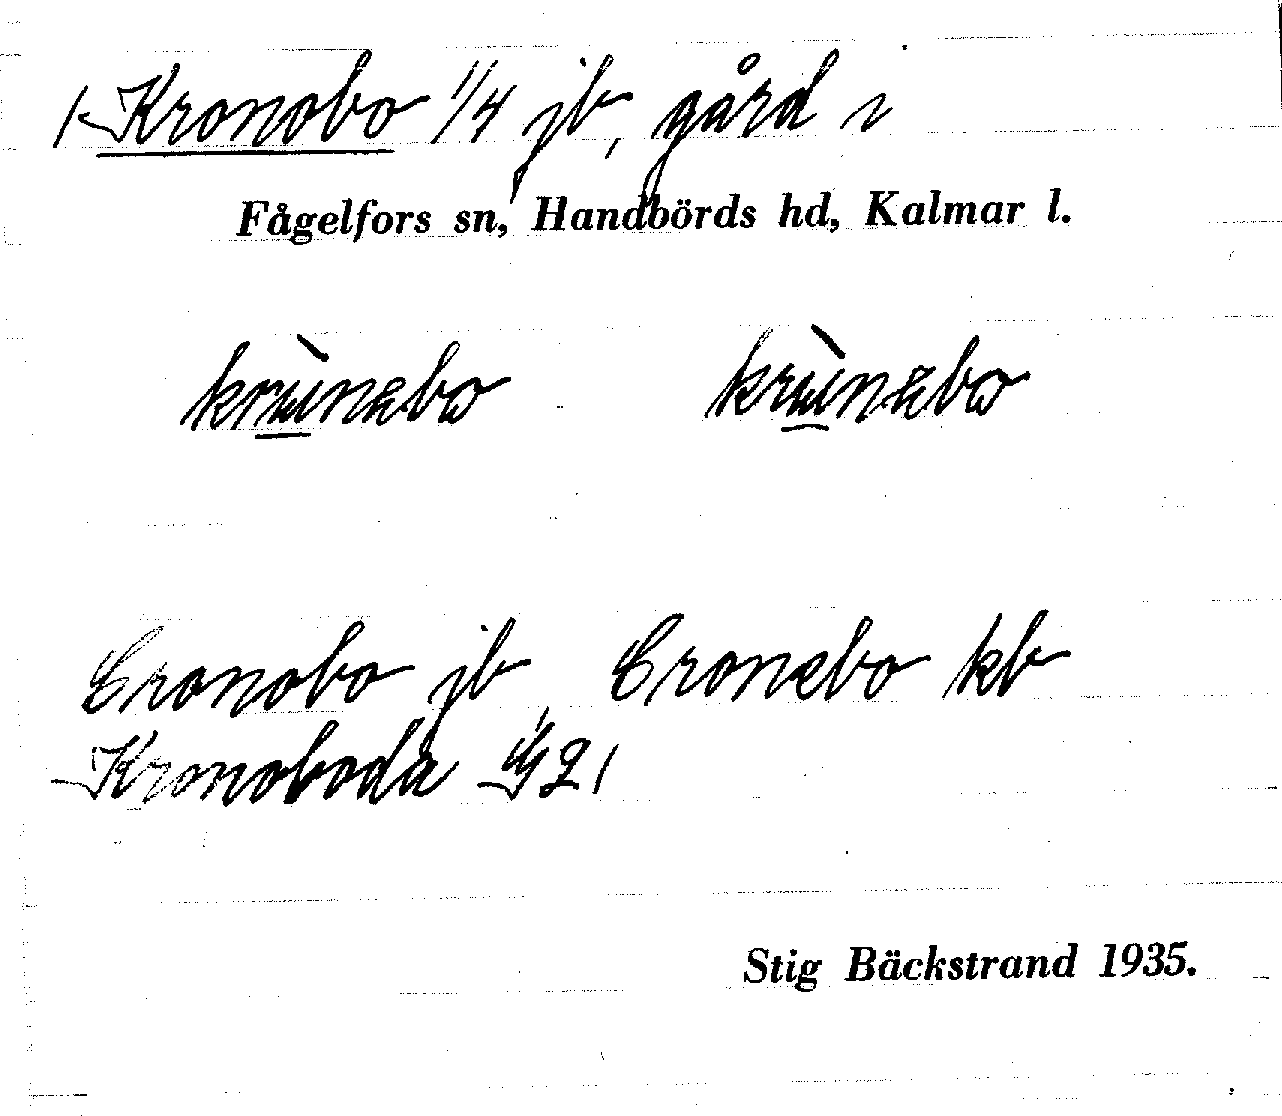 Kronobo 1/4 jb, gård i
Fågelfors sn, Handbörds hd, Kalmar l.
krùnebo krùnebo
Cronobo jb Cronebo kb
Kronoboda
Stig Bäckstrand 1935.